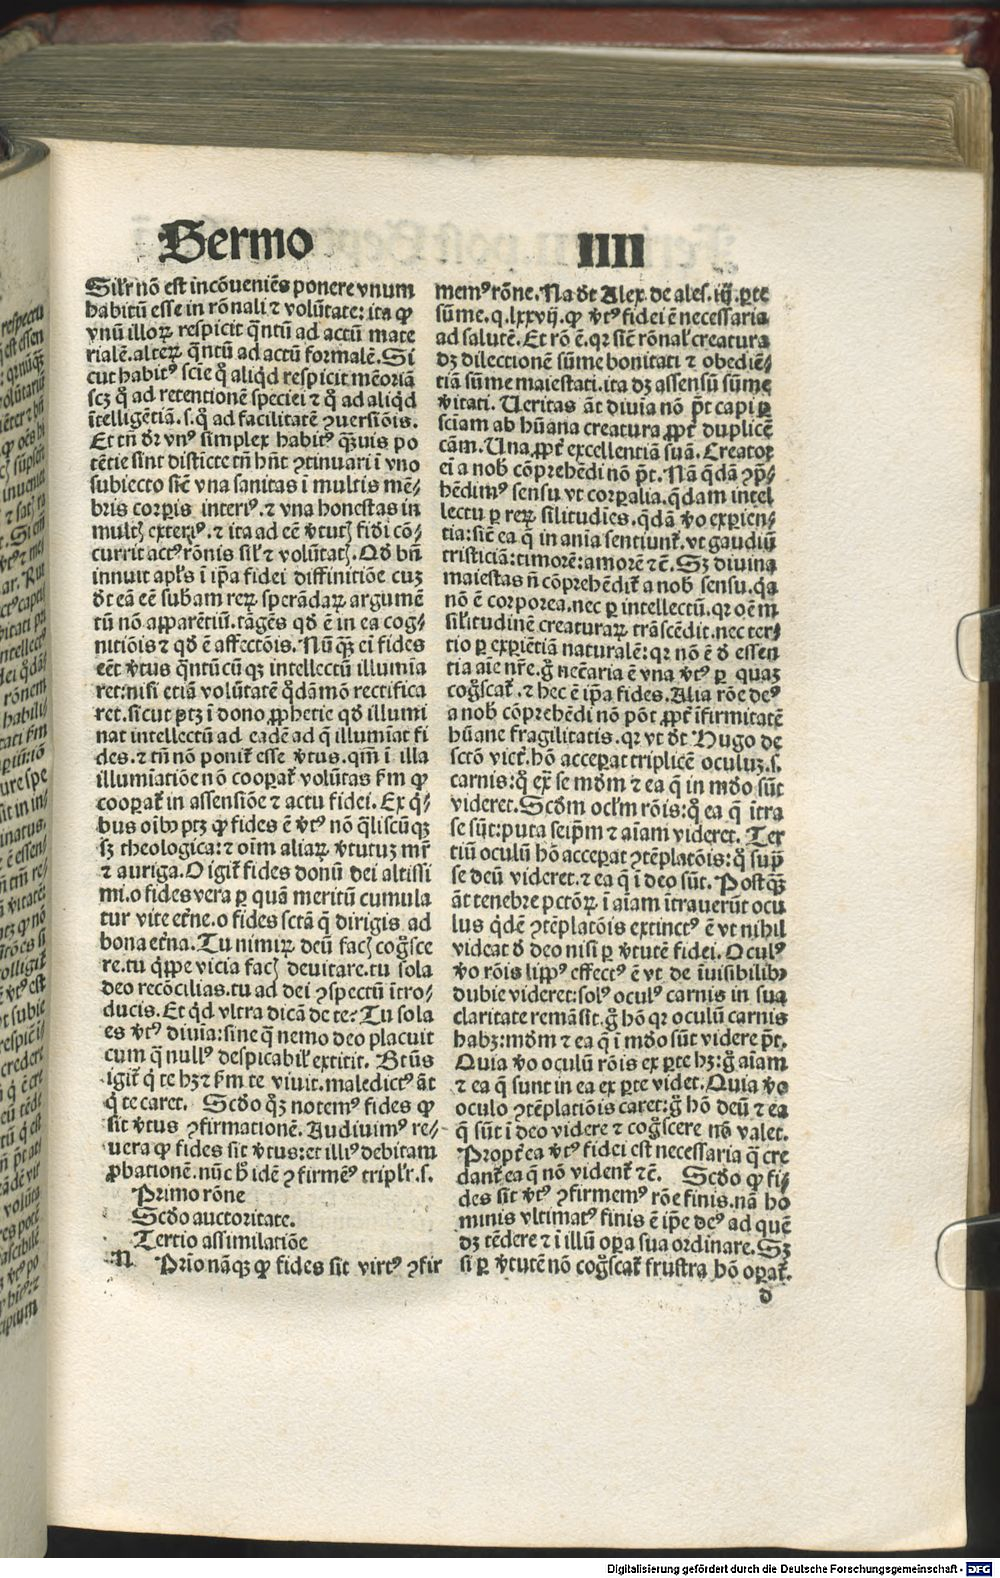 Sermo IIII
Silr nõ est incõueniẽs ponere vnum
habitũ esse in rõnali ⁊ volũtate: ita ꝙ
vnũ illoꝝ respicit q̃ntũ ad actũ mate
rialẽ. alterꝝ q̃ntũ ad actũ formalẽ. Si
cut habitꝰ scie q̊ ad aliqd respicit mẽoriã
scꝫ q̊ ad retentionẽ speciei ⁊ q̊ ad aliqd
ĩtelligẽtiã. s. q̊ ad facilitatẽ ꝯuersiõis.
Et tñ dr vnꝰ simplex habitꝰ q̃uis po
tẽtie sint distincte tñ hñt ꝯtinuari ĩ vno
subiecto sic̃ vna sanitas ĩ multis mẽ⸗
bris corꝑis interiꝰ. ⁊ vna honestas in
multꝭ exteriꝰ. ⁊ ita ad eẽ v̓tutꝭ fidi cõ⸗
currit actꝰ rõnis silꝭ ⁊ volũtatꝭ. Qd̓ bñ
innuit apl̓s ĩ ip̃a fidei diffinitiõe cuꝫ
d̓t eã eẽ subam reꝝ sperãdaꝝ argumẽ
tũ nõ apparẽtiũ. tãgẽs qd̓ ẽ in ea cog⸗
nitiõis ⁊ qd̓ ẽ affectõis. Nũ q̃ꝫ ei fides
eẽt v̓tus q̃ntũcũ qꝫ intellectũ illumĩa
ret: nisi etiã volũtatẽ q̊dãmõ rectifica
ret. sicut ptꝫ ĩ dono ꝓphetie qd̓ illumi
nat intellectũ ad eadẽ ad q̃ illumiat fi
des. ⁊ tñ nõ ponit̃ esse v̓tus. qm̃ ĩ illa
illumiatiõe nõ cooꝑat̃ volũtas sm̃ ꝙ
cooꝑat̃ in assensiõe ⁊ actu fidei. Ex q̓⸗
bus oĩbꝰ ptꝫ ꝙ fides ẽ v̓tꝰ nõ q̃liscũqꝫ
sꝫ theologica: ⁊ oĩm aliaꝝ v̓tutuꝫ mr̃
⁊ auriga. O igit̃ fides donũ dei altissi
mi. o fides vera ꝑ quã meritũ cumula
tur vite et̓ne. o fides sctã q̃ dirigis ad
bona et̓na. Tu nimiꝝ deũ facꝭ cog̊sce
re. tu q̓ppe vicia facꝭ deuitare. tu sola
deo recõcilias. tu ad dei ꝯspectũ ĩtro⸗
ducis. Et qd vltra dicã de te: Tu sola
es v̓tꝰ diuĩa: sine q̃ nemo deo placuit
cum q̃ nullꝰ despicabil̓ extitit. Bt̓us
igit̃ q̓ te hꝫ ⁊ sm̃ te viuit. maledictꝰ ãt
q̓ te caret. Scd̓o q̊ꝫ notemꝰ fides ꝙ
sit v̓tus ꝯfirmationẽ. Audiuimꝰ re⸗
uera ꝙ fides sit v̓tus: et illiꝰ debitam
ꝓbationẽ. nũc h̓ idẽ ꝯfirmẽꝰ tripl̓r. s.
Primo rõne
Scd̓o auctoritate.
Tertio assimilatiõe
N Prĩo nãqꝫ ꝙ fides sit virtꝰ ꝯfir
memꝰ rõne. Na d̓t Alex. de ales. iij. ꝑte
sũme. q. lxxvij. ꝙ v̓tꝰ fidei ẽ necessaria
ad salutẽ. Et rõ ẽ. qr sic̃ rõnal̓ creatura
dꝫ dilectionẽ sũme bonitati ⁊ obediẽ⸗
tiã sũme maiestati. ita dꝫ assensũ sũme
v̓itati. Ueritas ãt diuĩa nõ p̃t capi ꝑ
sciam ab hũana creatura ꝓpt̓ duplicẽ
cãm. Una ꝓpt̓ excellentiã suã. Creator
ei a nob̓ cõprehẽdi nõ p̃t. Nã q̃dã ꝯp̃⸗
hẽdimꝰ sensu vt corꝑalia. q̃dam intel
lectu ꝑ reꝝ silitudĩes. q̃dã v̓o exꝑien⸗
tia: sic̃ ea q̃ in anĩa sentiunt̃. vt gaudiũ
tristiciã: timorẽ: amorẽ ⁊c̃. Sꝫ diuina
maiestas ñ cõprehẽdit̃ a nob̓ sensu. q̓a
nõ ẽ corporea. nec ꝑ intellectũ. qr oẽm
silitudinẽ creaturaꝝ trãscẽdit. nec ter⸗
tio ꝑ exꝑiẽtiã naturalẽ: qr nõ ẽ d̓ essen
tia aĩe nr̃e. g̊ nec̃aria ẽ vna v̓tꝰ ꝑ quaꝫ
cog̊scat̃. ⁊ hec ẽ ip̃a fides. Alia rõe deꝰ
a nob̓ cõprehẽdi nõ põt ꝓpt̓ ĩfirmitatẽ
hũane fragilitatis. qr vt d̓t Hugo de
sctõ vict̃. hõ acceꝑat triplicẽ oculuꝫ. s.
carnis: q̊ ex̃ se mũdũ ⁊ ea q̃ in mũdo sũt
videret. Scd̓m ocl̓m rõis: q̊ ea q̃ ĩtra
se sũt: puta seip̃m ⁊ aĩam videret. Ter
tiũ oculũ hõ acceꝑat ꝯtẽplatõis: q̊ sup̃
se deũ videret. ⁊ ea q̃ ĩ deo sũt. Postq̃ꝫ
ãt tenebre pctõꝝ ĩ aĩam ĩtrauerũt ocu
lus q̓dẽ ꝯtẽplatõis extinctꝰ ẽ vt nihil
videat d̓ deo nisi ꝑ v̓tutẽ fidei. Oculꝰ
v̓o rõis lippꝰ effectꝰ ẽ vt de ĩuisibilibꝰ
dubie videret: solꝰ oculꝰ carnis in sua
claritate remãsit. g̊ hõ qr oculũ carnis
habꝫ: mũdũ ⁊ ea q̃ ĩ mũdo sũt videre p̃t.
Quia v̓o oculũ rõis ex ꝑte hꝫ: g̊ aĩam
⁊ ea q̃ sunt in ea ex ꝑte videt. Quia v̓o
oculo ꝯtẽplatiõis caret: g̊ hõ deũ ⁊ ea
q̃ sũt ĩ deo videre ⁊ cog̊scere nõ valet.
Propt̓ea v̓tꝰ fidei est necessaria q̃ cre
dant̃ ea q̃ nõ vident̃ ⁊c̃. Scd̓o ꝙ fi⸗
des sit v̓tꝰ ꝯfirmemꝰ rõe finis. nã ho
minis vltimatꝰ finis ẽ ip̃e deꝰ ad quẽ
dꝫ tẽdere ⁊ ĩ illũ oꝑa sua ordinare. Sꝫ
si ꝑ v̓tutẽ nõ cog̊scat̃ frustra hõ oꝑat̃.
d
Digitalisierung gefördert durch die Deutsche Forschungsgemeinschaft - DFG